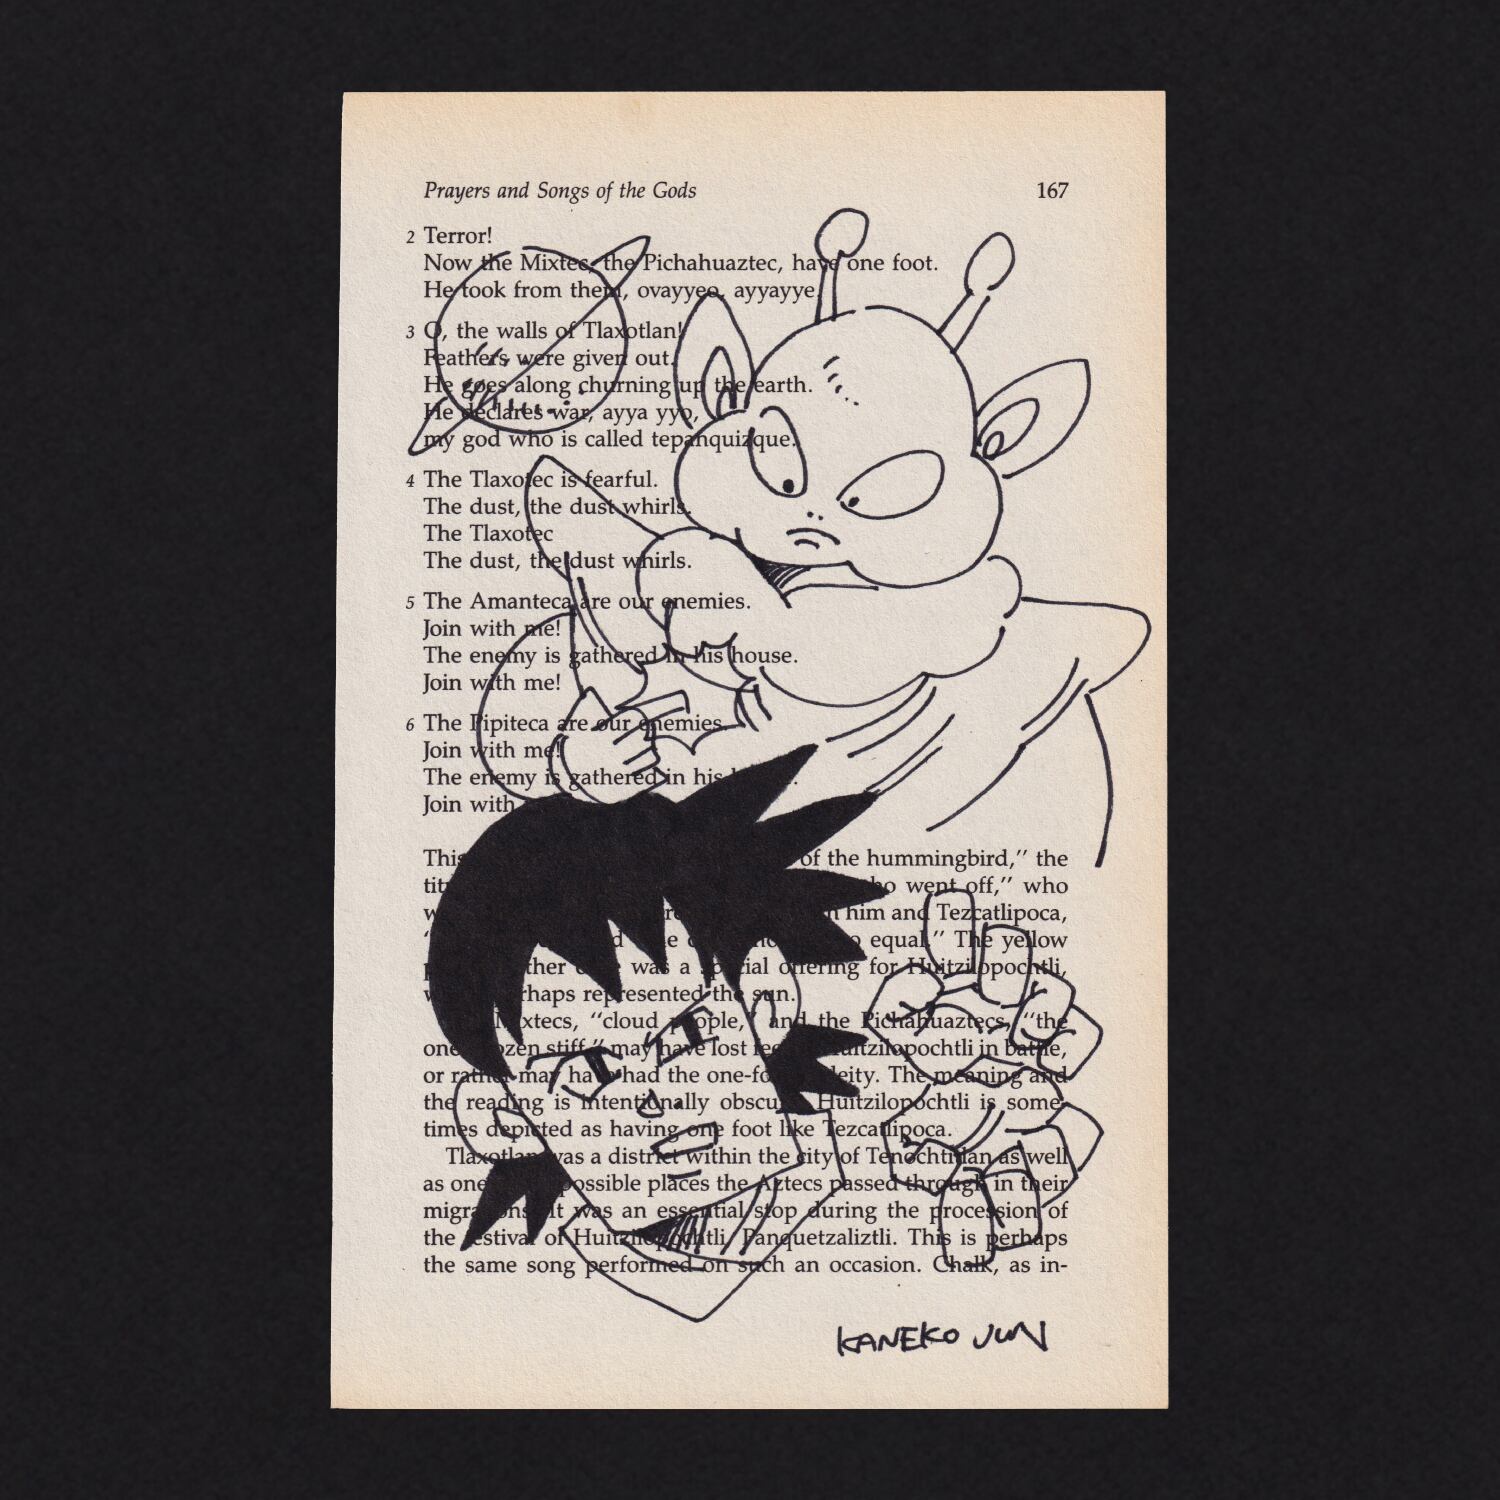 Prayers and Songs of the Gods 167
2 Terror!
Now the Mixtec, the Pichahuaztec, have one foot.
He took from them, ovayyeo, ayyayye.
3 O, the walls of Tlaxotlan!
Feathers were given out.
He goes along churning up the earth.
He declares war, ayya yyo,
my god who is called tepanquizque.
4 The Tlaxotec is fearful.
The dust, the dust whirls.
The Tlaxotec
The dust, the dust whirls.
5 The Amanteca are our enemies.
Join with me!
The enemy is gathered in his house.
Join with me!
6 The Pipiteca are our enemies.
Join with me!
The enemy is gathered in his
Join with
This of the hummingbird,” the
went off,” who
him and Tezcatlipoca,
equal.” The yellow
was a special offering for Huitzilopochtli,
represented the sun.
“cloud people,” and the Pichahuaztecs, “the
stiff,” may have lost Huitzilopochtli in battle,
or rather may have had the deity. The meaning and
the reading is intentionally Huitzilopochtli is some-
times depicted as having one foot like Tezcatlipoca.
Tlaxotlan was a district within the city of Tenochtitlan as well
as one possible places the Aztecs passed through in their
It was an essential stop during the procession of
the festival of Huitzilopochtli, Panquetzaliztli. This is perhaps
the same song performed on such an occasion. Chalk, as in-
KANEKO JUN